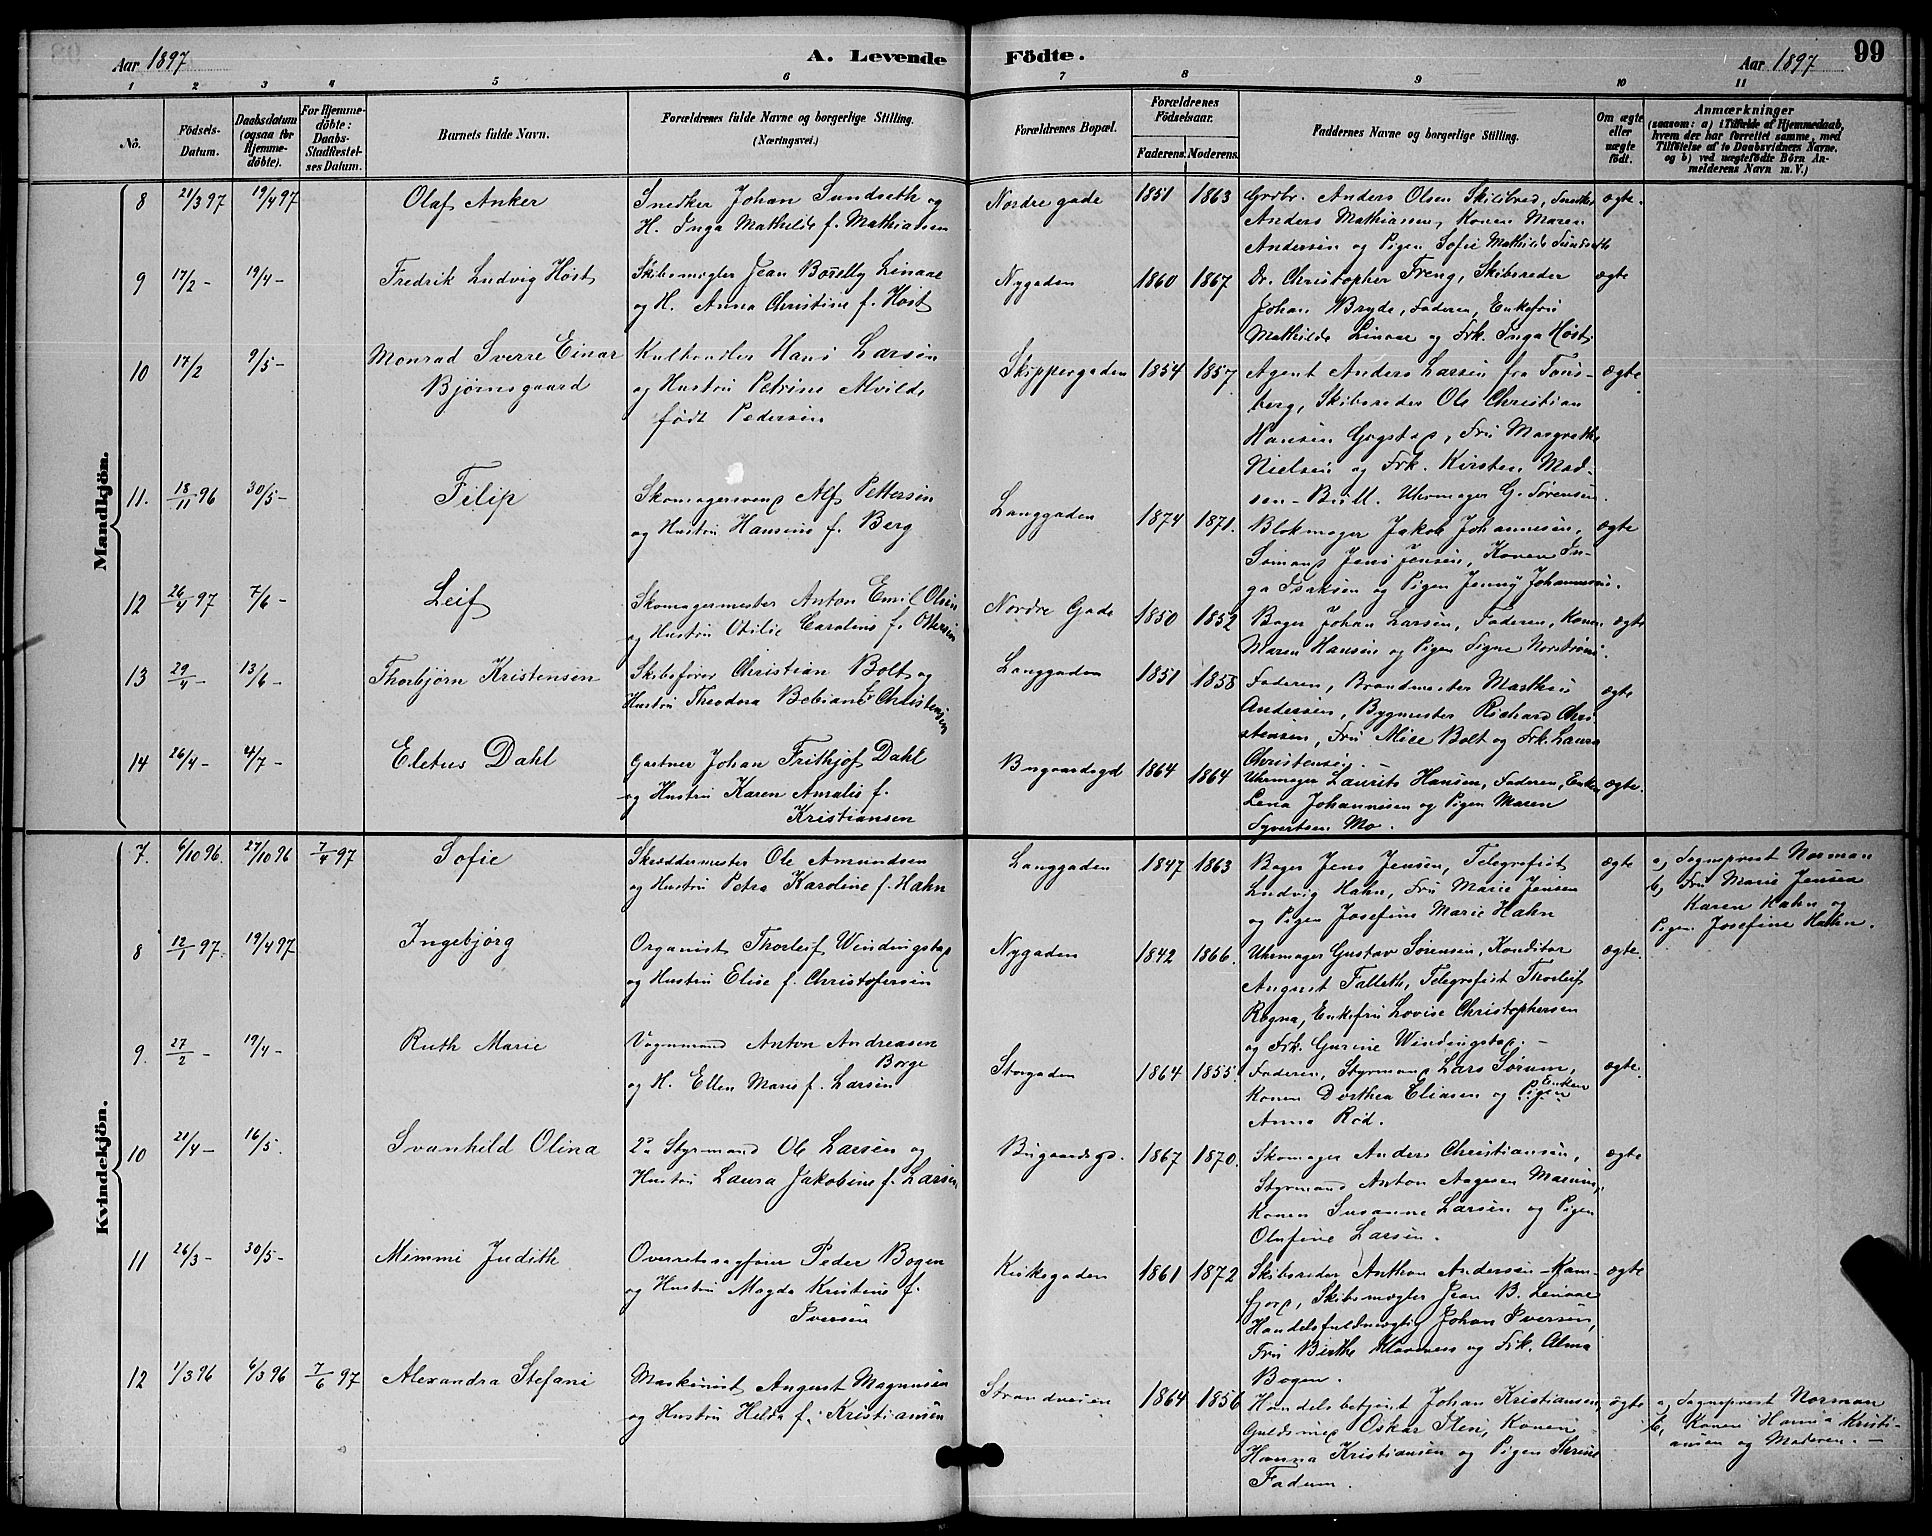 Aar 1897
A. Levende Födte.
Aar 1897
99
1 2 3 4 5 6 7 8 9 10 11
No.
Födsels-Datum.
Daabsdatum (ogsaa for Hjemme-döbte).
For Hjemme-döbte: Daabs-Stadfæstel-ses Datum.
Barnets fulde Navn.
Forældrenes fulde Navne og borgerlige Stilling. (Næringsvei.)
Forældrenes Bopæl.
Forældrenes Födselsaar.
Faderens. Moderens.
Faddernes Navne og borgerlige Stilling.
Om ægte eller uægte födt.
Anmærkninger (saasom: a) i Tilfælde af Hjemmedaab, hvem der har forrettet samme, med Tilföielse af to Daabsvidners Navne, og b) ved uægtefödte Börn An-melderens Navn m. V.)
Mandkjön.
8 21/3 97 19/4 97 Olaf Anker
Snedker Johan Sundseth og
H. Inga Mathilde f. Mathiasen
Nordre gade 1851 1863
Grdbr. Anders Olsen Skilibred, Snedker
Anders Mathiassen, Konen Maren
Andersen og Pigen Sofie Mathilde Sundseth
ægte.
9 17/2 - 19/4 - Fredrik Ludvig Høst
Skibsmægler Jean Borelly Linaae
og H. Anna Christine f. Høst
Nygaden 1860 1867
Dr. Christopher Freng, Skibsreder
Johan Bryde, Faderen, Enkefru
Mathilde Linaae og Frk. Inga Høst.
ægte
10 17/2 9/5 - Monrad Sverre Einar
Bjørnsgaard
Kulhandler Hans Larsen
og Hustru Petrine Alvilde
født Pedersen
Skippergaden 1854 1857
Agent Anders Larsen fra Tøns-
berg, Skibsreder Ole Christian
Hansen Gogstad, Fru Margrethe
Nielsen og Frk. Kirsten Mad-
sen-Bull. Uhrmager G. Sørensen.
ægte
11. 18/11 96 30/5 - Filip
Skomagersvend Alf Pettersen
og Hustru Hansine f. Berg
Langgaden 1874 1871.
Blokmager Jakob Johannesen,
Sømand Jens Jensen, Konen In-
ga Isaksen og Pigen Jenny Johannesen.
ægte
12 26/4 97 7/6 - Leif
Skomagermester Anton Emil Olsen
og Hustru Otilie Caroline f. Ottersen
Nordre Gade 1850 1852
Bager Johan Larsen, Faderen, Konen
Maren Hansen og Pigen Signe Norstrøm.
ægte
13 29/4 - 13/6 - Thorbjørn Kristensen
Skibsfører Christian Bolt og
Hustru Theodora Bebiane f. Christensen
Langgaden 1851 1858
Faderen, Brandmester Mathias
Andersen, Bygmester Richard Chri-
stensen, Fru Alice Bolt og Frk. Laura
Christensen. -
ægte
14 26/4 - 4/7 - Eletus Dahl
Gartner Johan Frithjof Dahl
og Hustru Karen Amalie f.
Kristiansen
Bugaardsgd 1864 1864
Uhrmager Laurits Hansen, Faderen, Enken
Lena Johannesen og Pigen Maren
Syvertsen Mo.
ægte.
Kvindekjön.
7. 6/10 96. 27/10 96 7/4 97 Sofie
Skræddermester Ole Amundsen
og Hustru Petra Karoline f. Hahn
Langgaden 1847 1863
Bager Jens Jensen, Telegrafist
Ludvig Hahn, Fru Marie Jensen
og Pigen Josefine Marie Hahn
ægte
a, Sogneprest Norman
b, Fru Marie Jensen
Karen Hahn og
Pigen Josefine Hahn.
8 12/1 97. 19/4 97 Ingebjørg
Organist Thorleif Windingstad
og Hustru Elise f. Christofersen
Nygaden 1842 1866.
Uhrmager Gustav Sørensen, Konditor
August Falleth, Telegrafist Thorleif
Rogna, Enkefru Lovise Christophersen
og Frk. Gurine Windingstad. -
ægte.
9. 27/2 - 19/4 - Ruth Marie
Vognmand Anton Andreasen
Borge
og H. Ellen Marie f. Larsen
Storgaden 1864 1855.
Faderen, Styrmand Lars Sørum,
Konen Dorthea Eliasen og Pigen Enken
Anna Rød.
ægte.
10 21/4 - 16/5. Svanhild Olina
2n Styrmand Ole Larsen og
Hustru Laura Jakobine f. Larsen
Bugaardsgd. 1867 1870.
Skomager Anders Christiansen,
Styrmand Anton Aagesen
Konen Susanne Larsen og Pigen
Olufine Larsen.
ægte
11 26/3 - 30/5 - Mimmi Judith
Overretssagfører Peder Bogen
og Hustru Magda Kristine f.
Iversen
Kirkegaden 1861 1872
Skibsreder Anthon Andersen-Kam-
fjord, Skibsmægler Jean B. Linaae
Handelsfuldmægtig Johan Iversen,
Fru Birthe Klavenes og Frk. Alma
Bogen.
ægte
12 1/3 96 6/3 96 7/6 97 Alexandra Stefani
Maskinist August Magnusen
og Hustru Hilda f. Kristiansen
Strandveien 1864 1856
Handelsbetjent Johan Kristiansen,
Guldsmed Oskar Steen, Konen
Hanna Kristiansen og Pigen Thrine
Fadum.
ægte
a, Sogneprest Norman
b, Konen Hanna Kristi-
ansen og Moderen. -